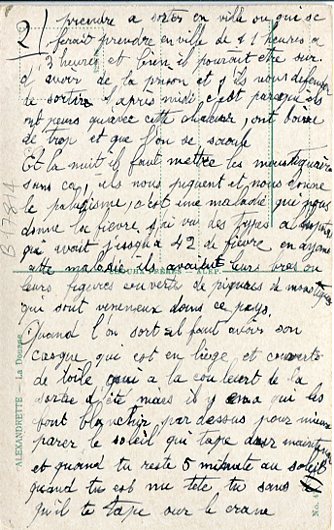 2) prendre a sortir en ville ou qui se
ferait prendre en ville de à 11 heures a
3 heures et bien il pourrait etre sur
d'avoir de la prison et s'ils nous defende
de sortir l'après midi, c'est parsqu'ils
ont peurs qu'avec cette chaleur, ont boive
de trop et que l'on se saoule
Et la nuit il faut mettre les moustiquaire
sans ça, ils nous piquent et nous donne
le paludisme, c'est une maladie qui nous
donne la fievre j'ai vu des types a l'hopital
qui avait jusqua 42 de fievre en ayant
cette maladie ils avaient leurs bras ou
leurs figures couverts de piqures de moustique
qui sont venimeux dans ce pays.
Quand l'on sort il faut avoir son
casque qui est en liège, et couverte
de toile qui a la couleur de la
sortie d'été mais il y en a qui les
font blanchir par dessus pour mieux
parer le soleil qui tape dur maintenant
et quand tu reste 5 minute au soleil
quand tu est nu tete tu sans
qu'il te tape sur le crane
ALEXANDRETTE — La Douane
COUCHA FRÈRES - ALEP.
No.
B 17814